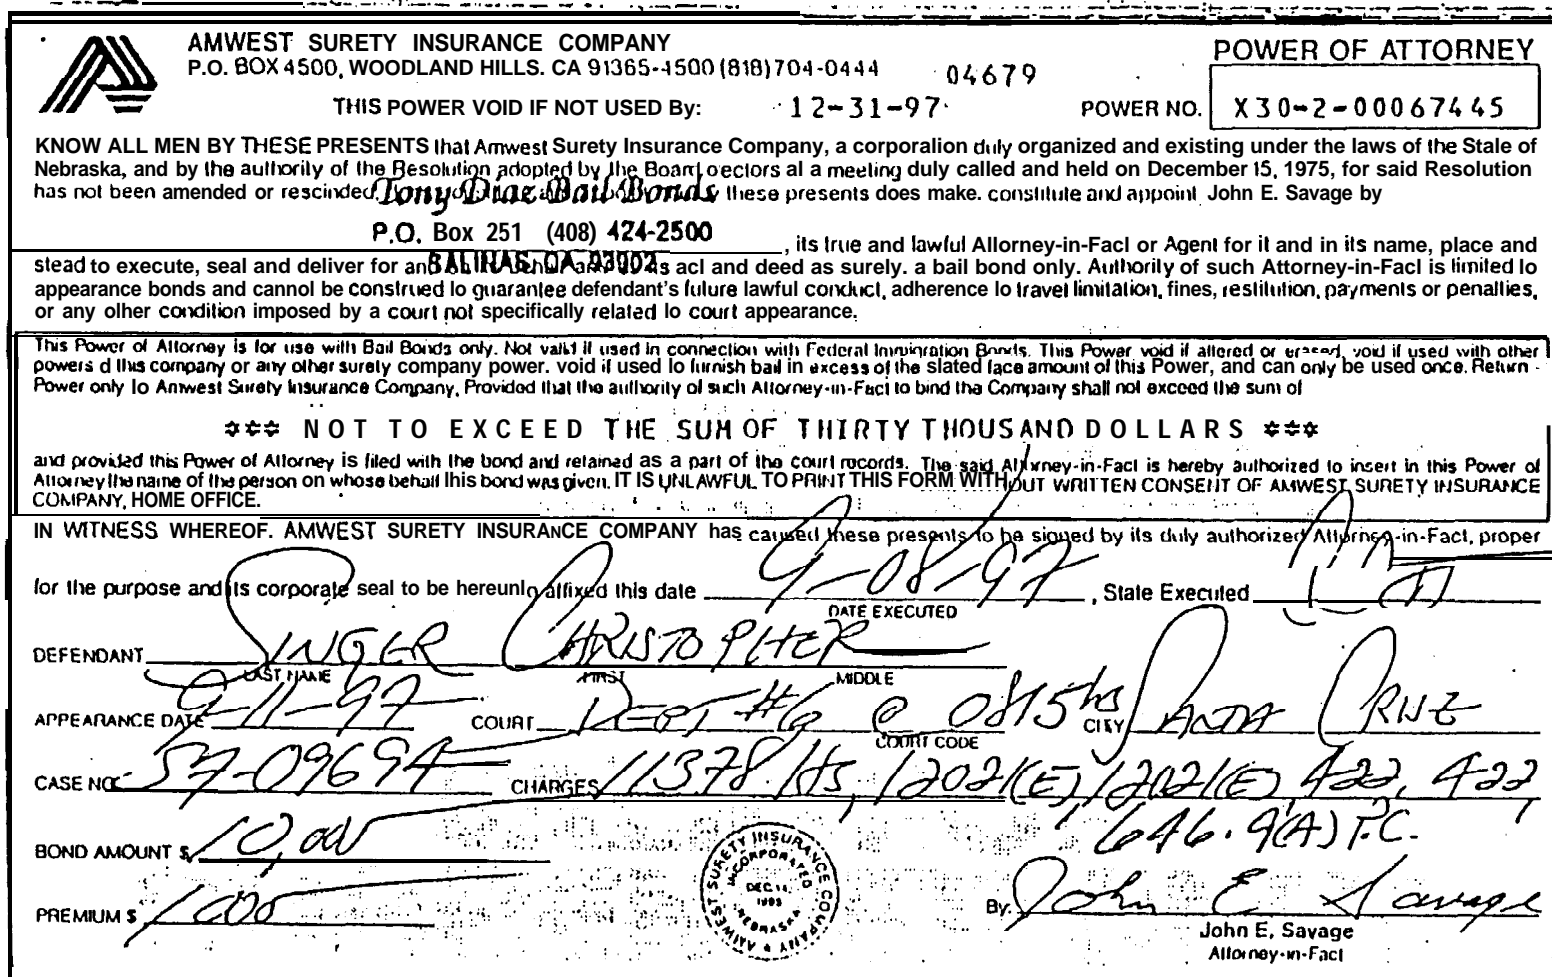 AMWEST SURETY INSURANCE COMPANY
P.O. BOX 4500, WOODLAND HILLS. CA 91365-4500 (818) 704-0444
04679
POWER OF ATTORNEY
THIS POWER VOID IF NOT USED By: 12-31-97
POWER NO. X30-2-00067445
KNOW ALL MEN BY THESE PRESENTS that Amwest Surety Insurance Company, a corporation duly organized and existing under the laws of the State of
Nebraska, and by the authority of the Resolution adopted by the Board ectors at a meeting duly called and held on December 15, 1975, for said Resolution
has not been amended or rescinded these presents does make. constitute and appoint John E. Savage by
Tony Diaz Bail Bonds
P.O. Box 251 (408) 424-2500
SALINAS, CA 93902
, its true and lawful Attorney-in-Fact or Agent for it and in its name, place and
stead to execute, seal and deliver for and act and deed as surety. a bail bond only. Authority of such Attorney-in-Fact is limited to
appearance bonds and cannot be construed to guarantee defendant's future lawful conduct, adherence to travel limitation, fines, restitution, payments or penalties,
or any other condition imposed by a court not specifically related to court appearance.
This Power of Attorney is for use with Bail Bonds only. Not valid if used in connection with Federal Immigration Bonds. This Power void if altered or erased, void if used with other
powers d this company or any other surety company power. void if used to furnish bail in excess of the stated face amount of this Power, and can only be used once. Return
Power only to Amwest Surety Insurance Company, Provided that the authority of such Attorney-in-Fact to bind the Company shall not exceed the sum of
*** NOT TO EXCEED THE SUM OF THIRTY THOUSAND DOLLARS ***
and provided this Power of Attorney is filed with the bond and retained as a part of the court records. The said Attorney-in-Fact is hereby authorized to insert in this Power of
Attorney the name of the person on whose behalf this bond was given. IT IS UNLAWFUL TO PRINT THIS FORM WITHOUT WRITTEN CONSENT OF AMWEST SURETY INSURANCE
COMPANY, HOME OFFICE.
IN WITNESS WHEREOF. AMWEST SURETY INSURANCE COMPANY has caused these presents to be signed by its duly authorized Attorney-in-Fact, proper
for the purpose and its corporate seal to be hereunto affixed this date 9-08-97, State Executed CA
DATE EXECUTED
DEFENDANT SINGER CHRISTOPHER
LAST NAME FIRST MIDDLE
APPEARANCE DATE 9-11-97 COURT DEPT #6 @ 0815 hs CITY SANTA CRUZ
COURT CODE
CASE NO. S7-09694 CHARGES 11378 HS, 12021(E), 12021(E), 422, 422,
646.9(A) P.C.
BOND AMOUNT $ 10,000
PREMIUM $ 1000
AMWEST SURETY INSURANCE COMPANY
INCORPORATED
DEC. 14,
1993
NEBRASKA
By: John E Savage
John E. Savage
Attorney-in-Fact